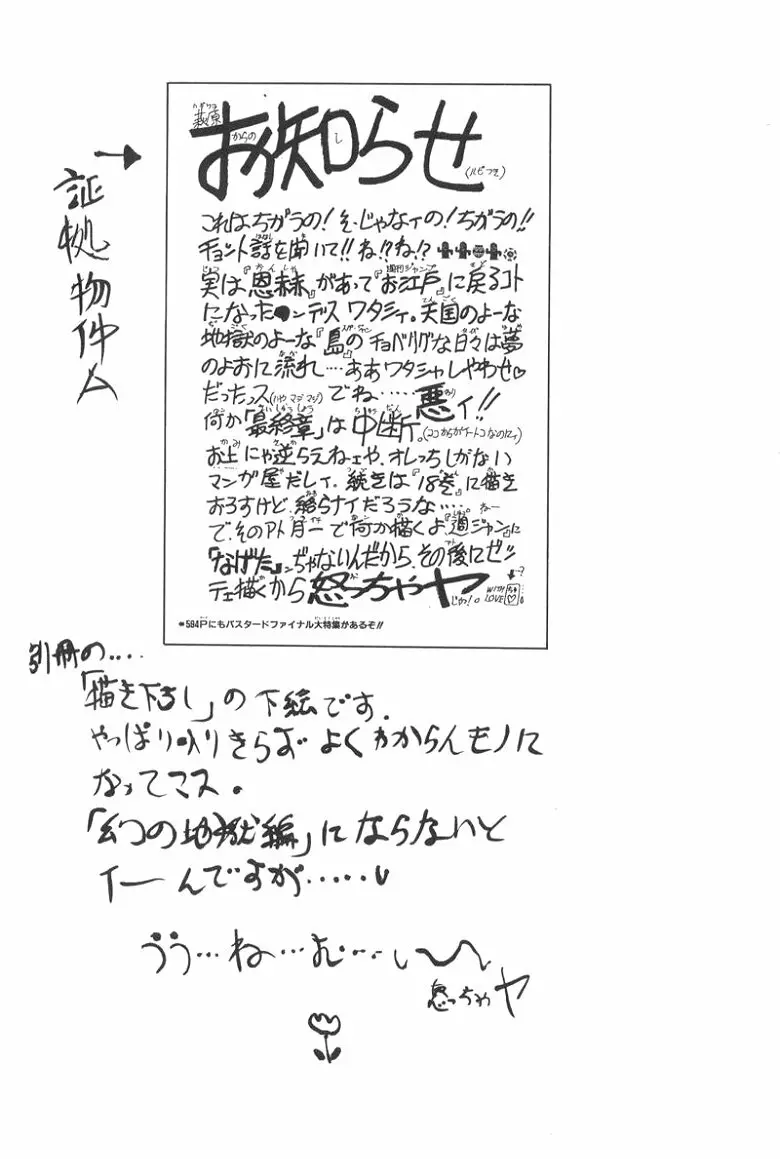 証拠物件A
萩原からのお知らせ
(ルビつき)
これはちがうの!そ、じゃなィの!ちがうの!!
チョント話を聞いて!!ね!?ね!?
実は『恩赦』があって『お江戸』に戻るコト
になったンデス ワタシィ。天国のよーな
地獄のよーな『島』のチョベリグな日々は夢
のよおに流れ…ああワタシャしやわせ♡
だったっス(ハヤ マジ マジ)でね……悪ィ!!
何か「最終章」は中断。(ココからがイートコなのにィ)
お上にゃ逆らえねェや、オレっちしがない
マンガ屋だしィ、続きは『18巻』に描き
おろすけど、終らナイだろうな….ねー
で、そのアト月一で何か描くよ『週ジャン』に
「なげた」ンぢゃないんだから、その後にゼッ
テェ描くから怒っちゃヤじゃ!。
WITH LOVE
*594Pにもバスタードファイナル大特集があるぞ!!
別冊の….
「描き下ろし」の下絵です.
やっぱり入りきらず よくわからんモノに
なってマス。
「幻の地獄編」にならないと
イーんですが……
ううう…ね…む…い〜
怒っちゃヤ